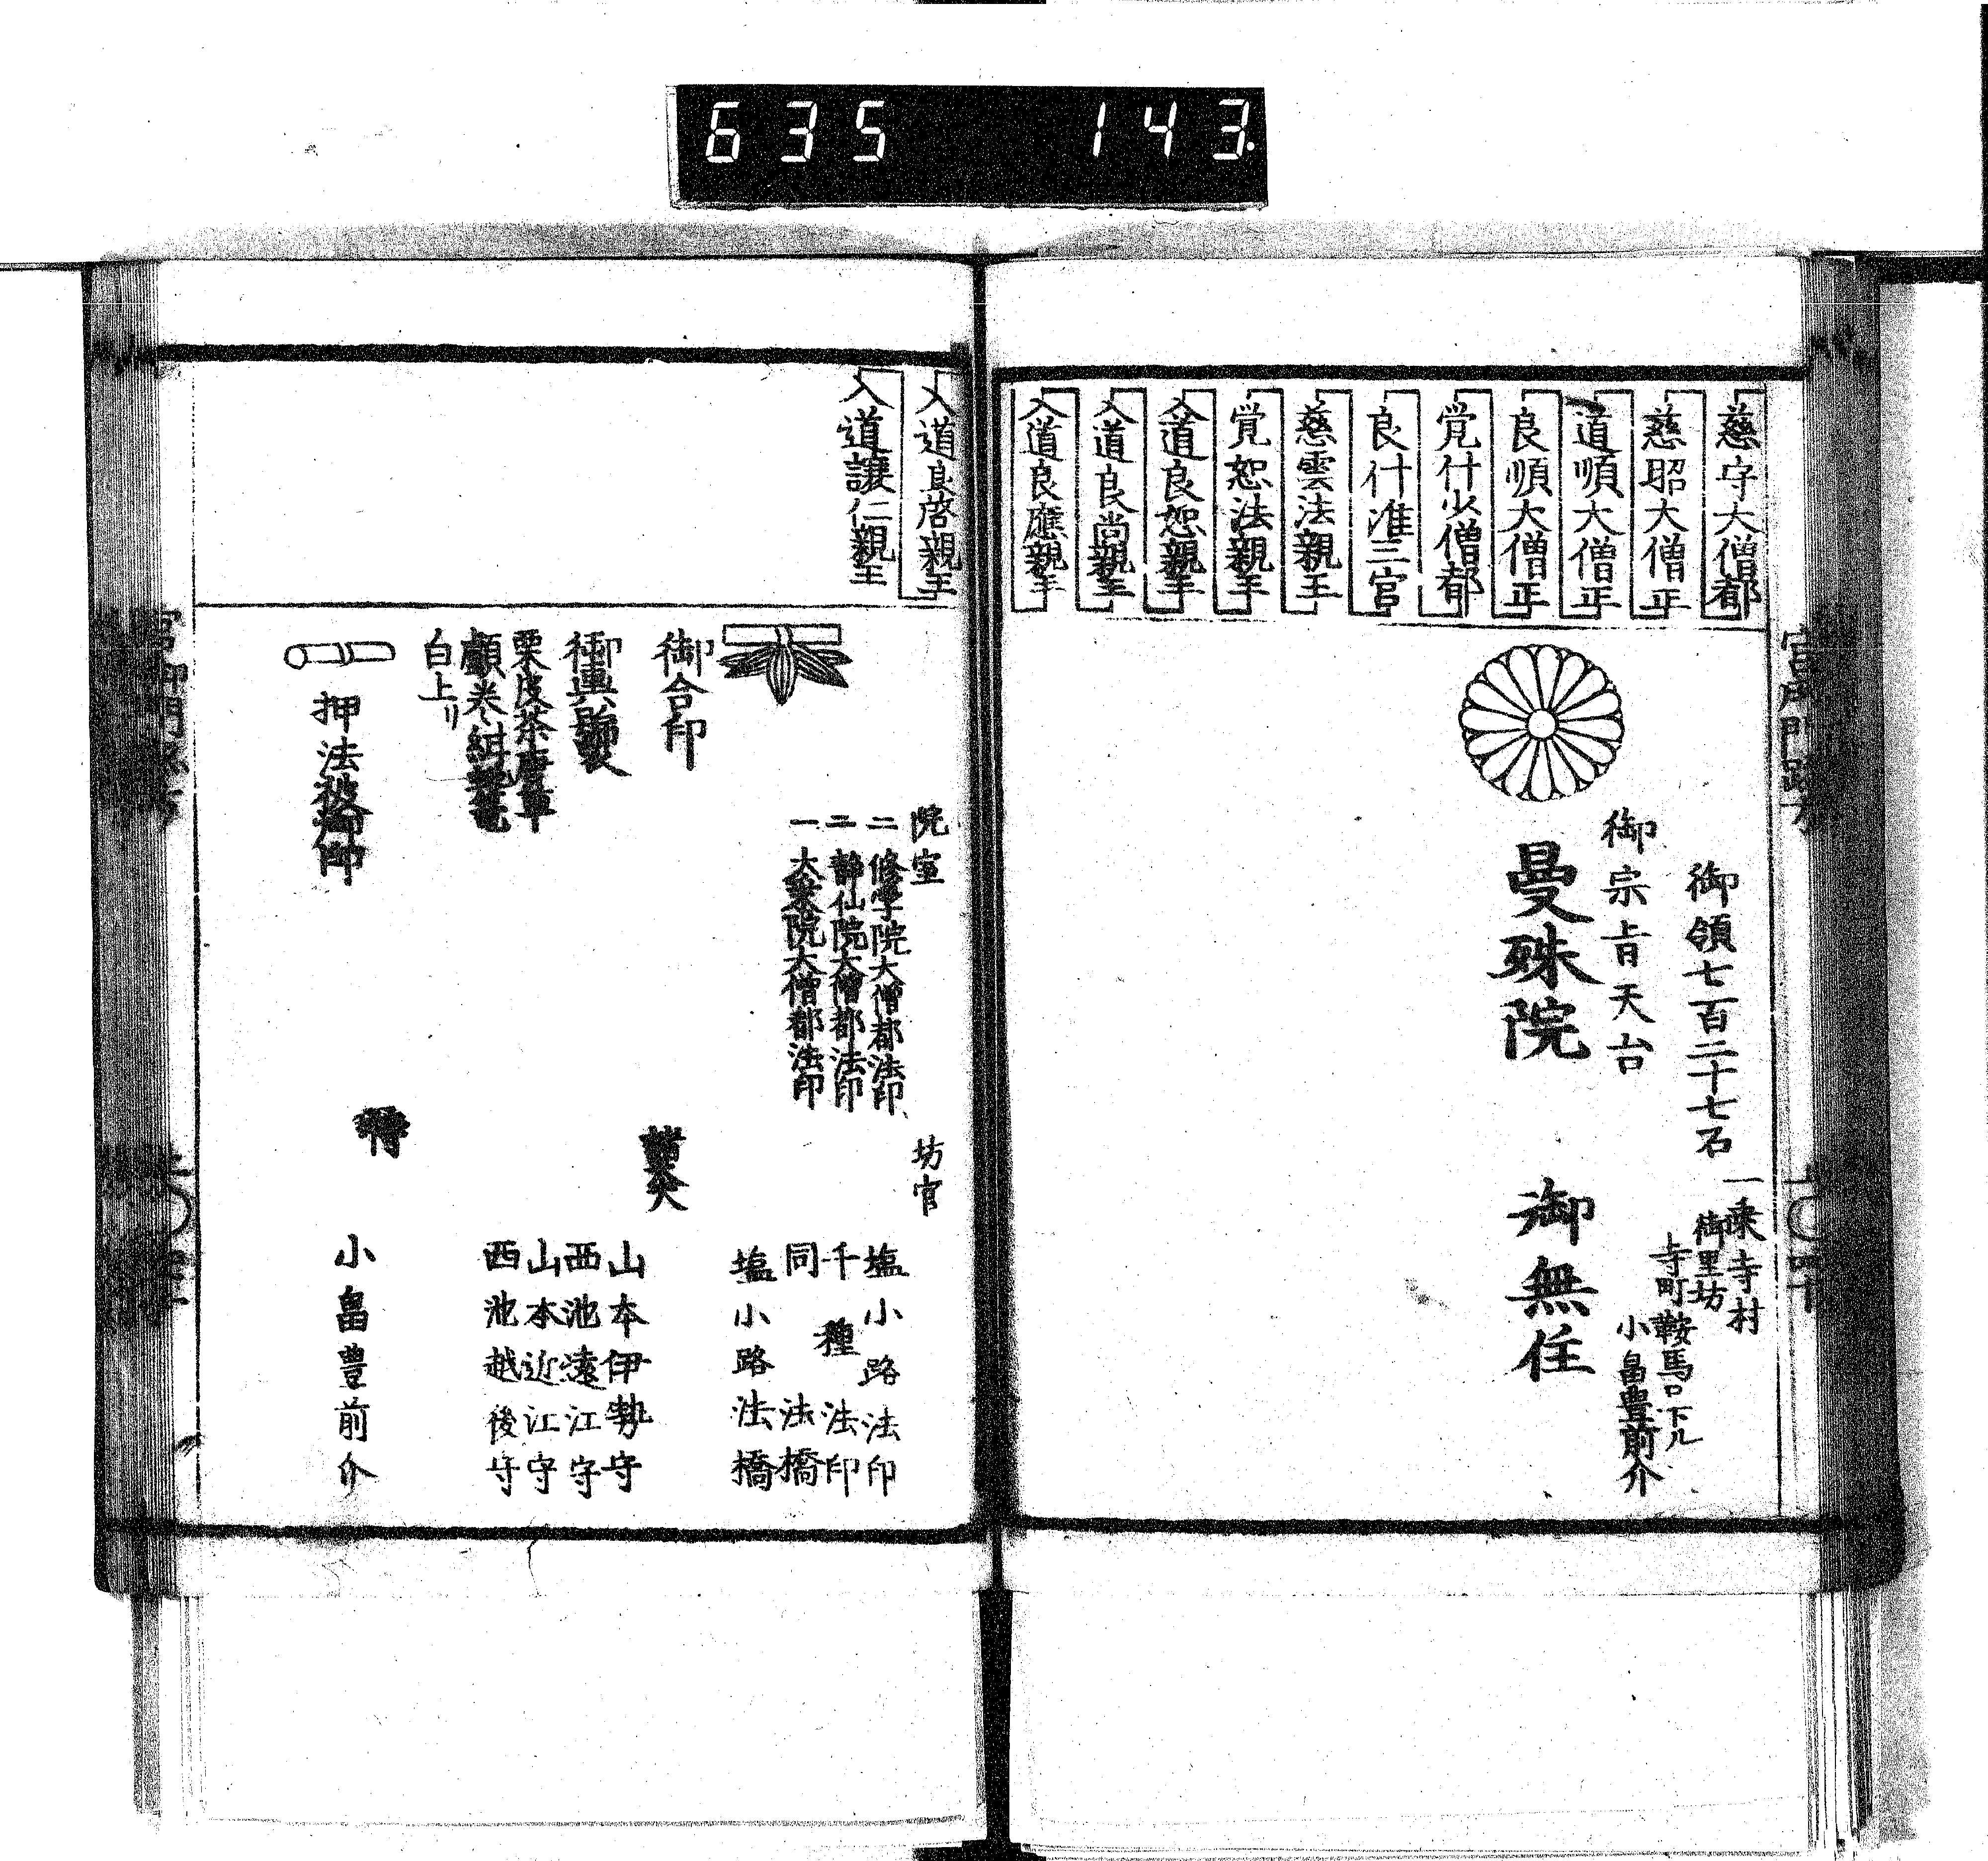 635 143
慈守大僧都
慈昭大僧正
道順大僧正
良順大僧正
覚什少僧都
良什准三宮
慈雲法親王
覚恕法親王
入道良恕親王
入道良尚親王
入道良應親王
御領七百二十七石
一乗寺村
御里坊
寺町鞍馬口下ル
小畠豊前介
御宗旨天台
曼殊院
御無住
入道良啓親王
入道譲仁親王
院室
二 修学院大僧都法印
二 静仙院大僧都法印
一 大乗院大僧都法印
坊官
塩小路法印
千種法印
同 法橋
塩小路法橋
御合印
諸大夫
山本伊勢守
西池遠江守
山本近江守
西池越後守
栗皮茶唐草
白上リ
押法被御印
侍
小畠豊前介